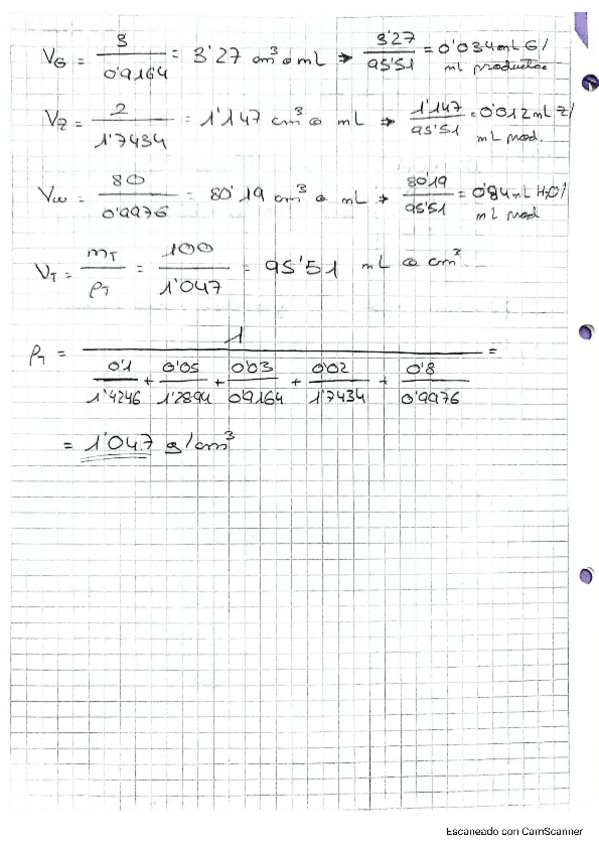 V_G = 3 / 0'9164 = 3'27 cm³ o mL → 3'27 / 95'51 = 0'034 mL G / mL producto
V_Z = 2 / 1'7434 = 1'147 cm³ o mL → 1'147 / 95'51 = 0'012 mL Z / mL prod.
V_w = 80 / 0'9976 = 80'19 cm³ o mL → 80'19 / 95'51 = 0'84 mL H₂O / mL prod
V_T = m_T / ρ_T = 100 / 1'047 = 95'51 mL o cm³
ρ_T = 1 / (0'1 / 1'4246 + 0'05 / 1'2894 + 0'03 / 0'9164 + 0'02 / 1'7434 + 0'8 / 0'9976) =
= 1'047 g/cm³
Escaneado con CamScanner